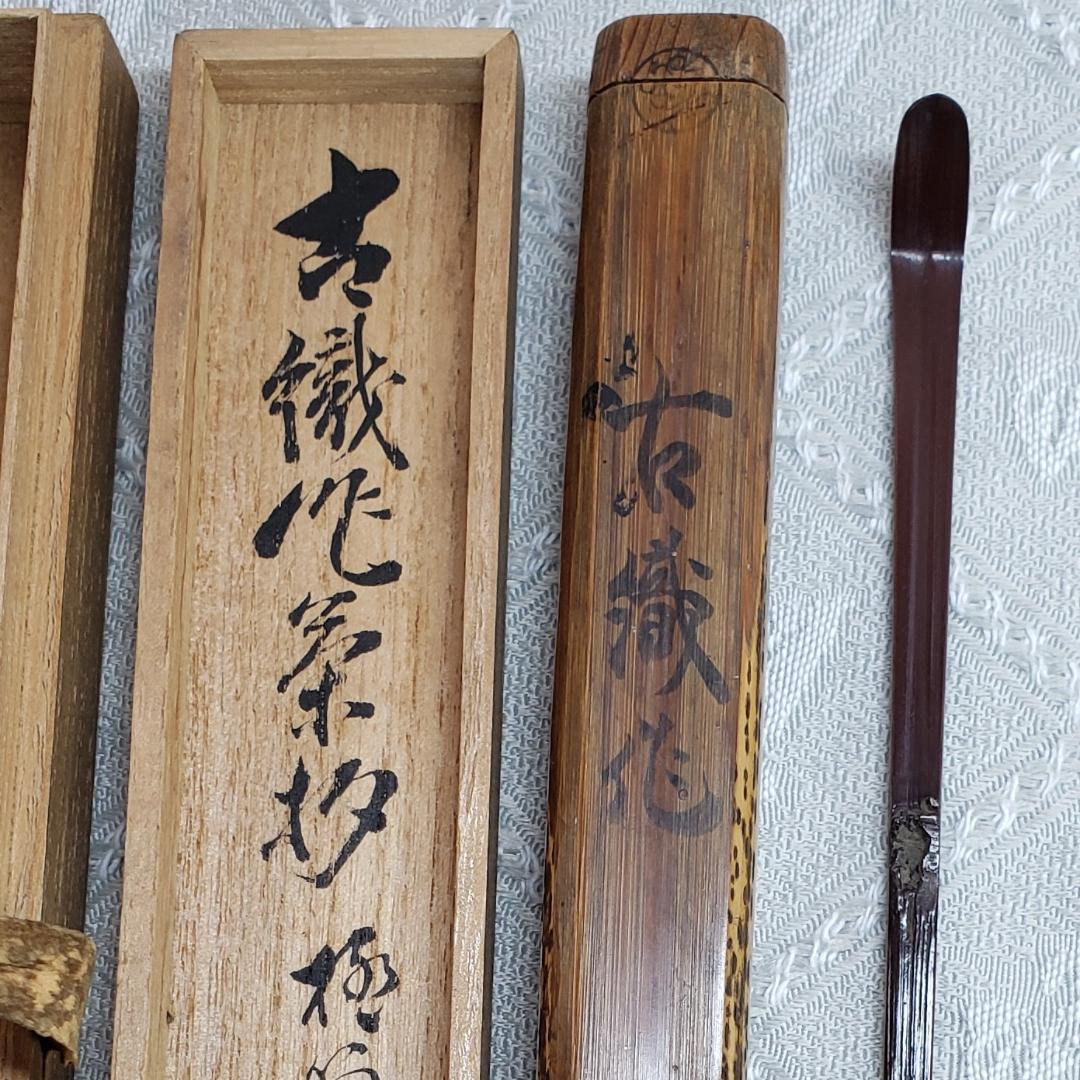 古織作茶杓 極
古織作